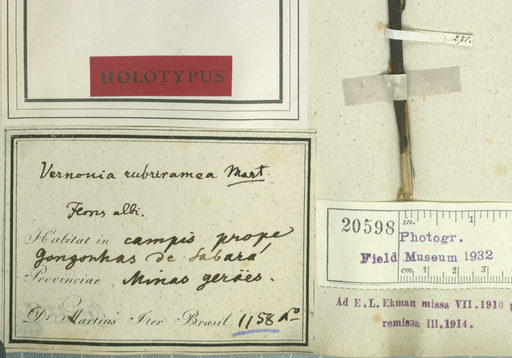 HOLOTYPUS
Vernonia rubriramea Mart.
Flores albi.
Habitat in campis prope
Gongonhas de Sabará
Provinciae Minas geräes.
Dr. Martius Iter Brasil. 1158
271.
20598
in.
1
Photogr.
Field Museum 1932
cm. 1 2 3
Ad E. L. Ekman missa VII. 1910
remissa III. 1914.